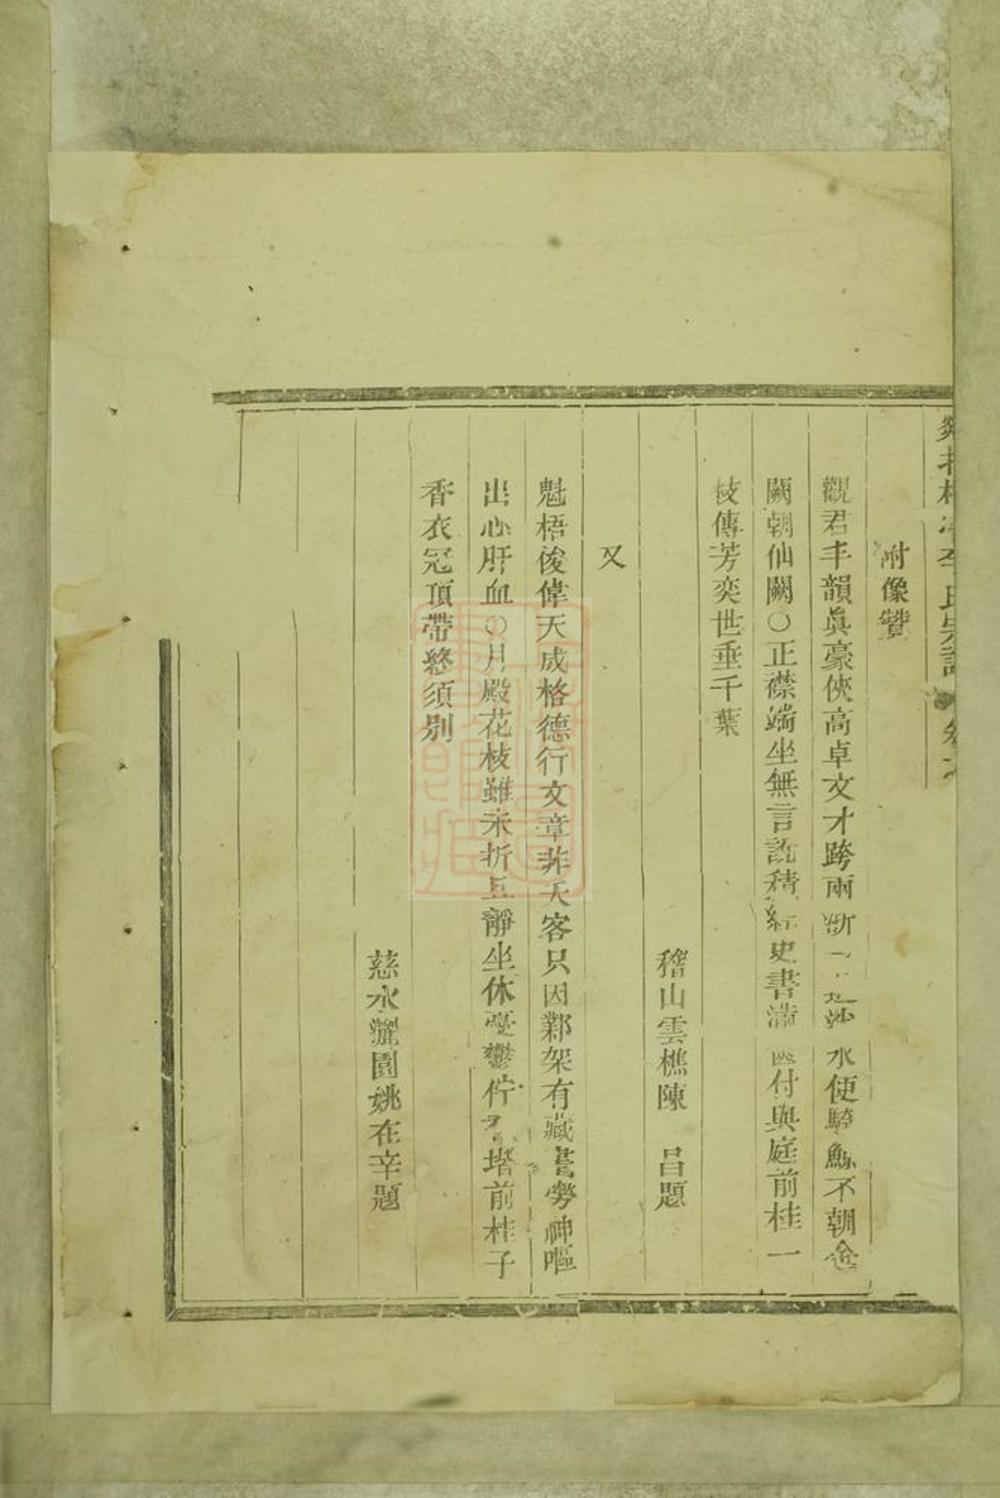 李氏宗譜
附像贊
觀君丰韻眞豪俠高卓文才跨兩浙水使騎鯨不朝金
闕朝仙闕○正襟端坐無言說積經史書滿付與庭前桂一
枝傳芳奕世垂千葉
稽山雲樵陳 昌題
又
魁梧俊偉天成格德行文章非天客只因鄴架有藏書勞神嘔
出心肝血○月殿花枝雖未折且靜坐休憂鬱佇堦前桂子
香衣冠頂帶終須别
慈水灑園姚在辛題